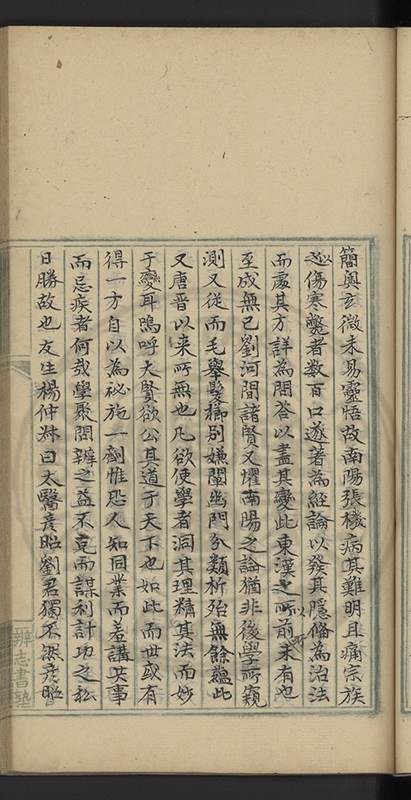 簡奥玄微未易靈悟故南陽張機病其難明且痛宗族
之以傷寒斃者數百口遂著為經論以發其隱脩為治法
而處其方詳為問荅以盡其變此東漢之所以前未有也
至成無已劉河間諸賢又懼南陽之論猶非後學所窺
測又從而毛舉髮櫛別嫌闡幽門分類析殆無餘蘊此
又唐晉以来所無也凡欲使學者洞其理精其法而妙
于變耳嗚呼大賢欲公其道于天下也如此而世或有
得一方自以為祕施一劑惟恐人知同業而羞講共事
而忌疾者何哉學聚問辨之益不克而謀利計功之私
日勝故也友生楊仲林曰太醫彦昭劉君獨不然彦昭
辨志書塾